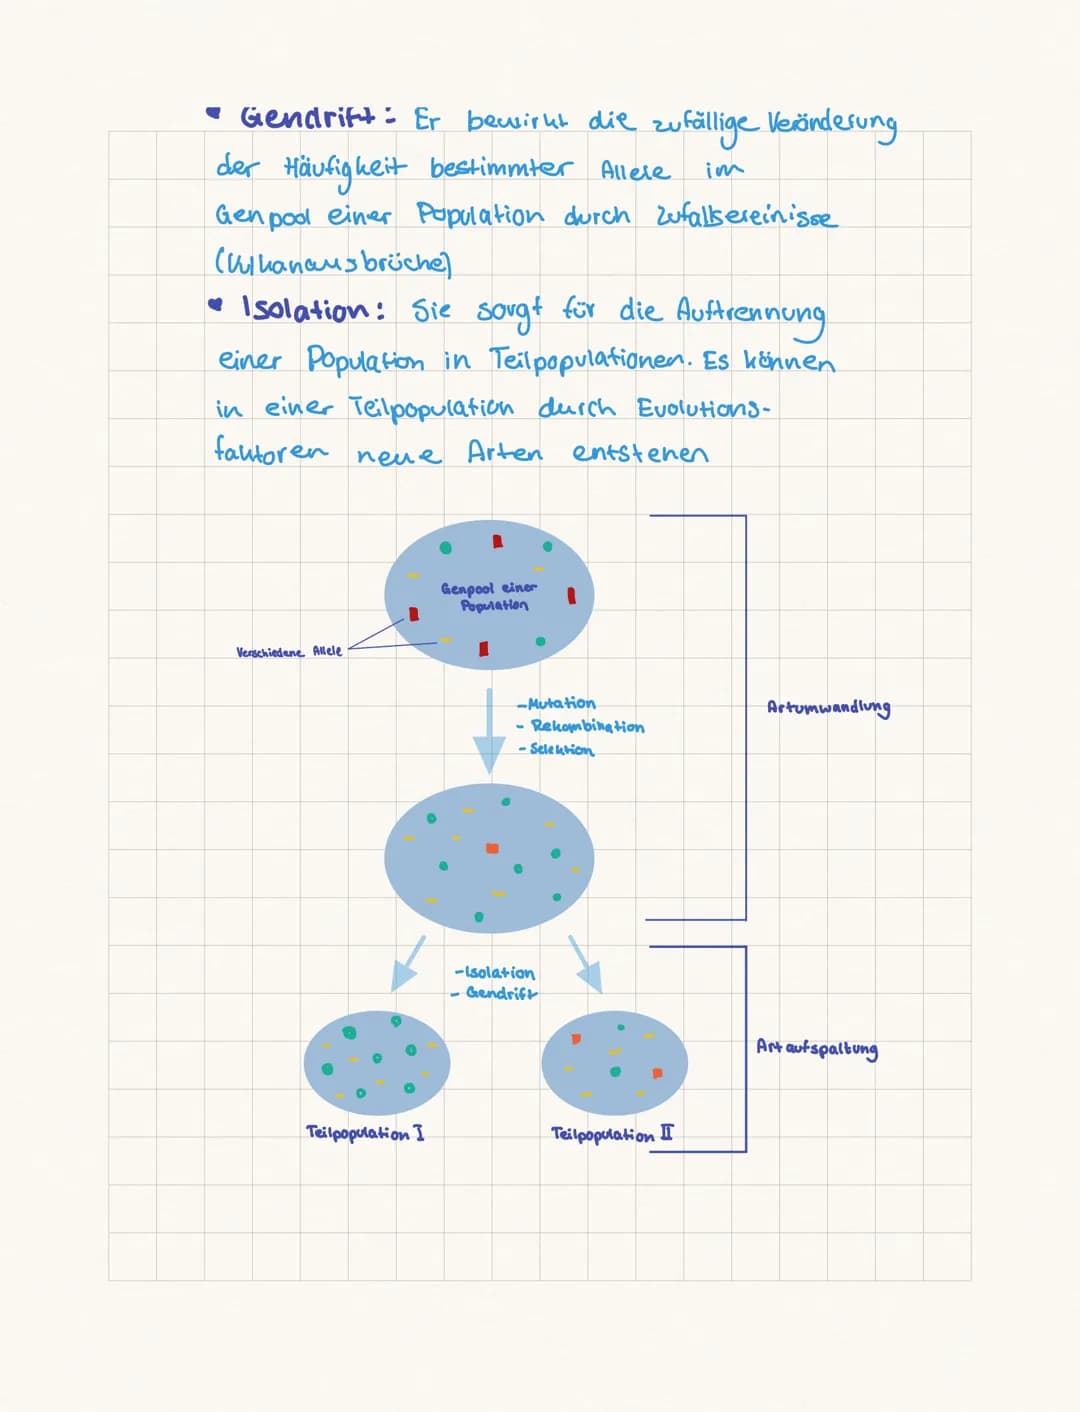 • Gendrift: Er bewirkt die zufällige Veränderung
der Häufigkeit bestimmter Allele im
Genpool einer Population durch Zufallsereinisse
(Vulkanausbrüche)
• Isolation: Sie sorgt für die Auftrennung
einer Population in Teilpopulationen. Es können
in einer Teilpopulation durch Evolutions-
faktoren neue Arten entstehen
Genpool einer
Population
Verschiedene Allele
-Mutation
- Rekombination
- Selektion
Artumwandlung
-Isolation
- Gendrift
Artaufspaltung
Teilpopulation I
Teilpopulation II